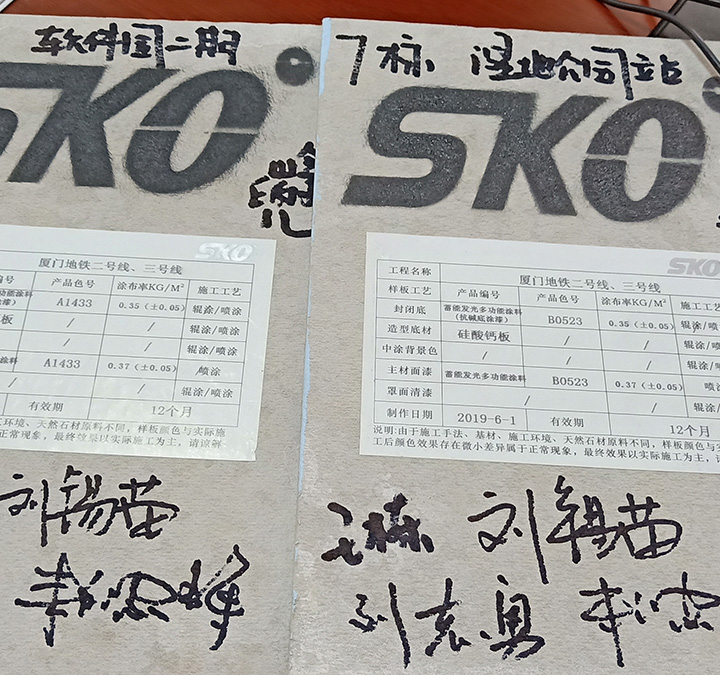 软件园二期
SKO
SKO
厦门地铁二号线、三号线
编号 产品色号 涂布率KG/M² 施工工艺
A1433 0.35(±0.05) 辊涂/喷涂
板 / / 辊涂/喷涂
/ / 辊涂/喷涂
A1433 0.37(±0.05) 喷涂
/ / 辊涂/喷涂
有效期 12个月
工环境、天然石材原料不同,样板颜色与实际施
正常现象,最终效果以实际施工为主,请谅解
刘锡苗
7标 湿地公园站
SKO
SKO
工程名称 厦门地铁二号线、三号线
样板工艺 产品编号 产品色号 涂布率KG/M² 施工工
封闭底 蓄能发光多功能涂料(抗碱底涂漆) B0523 0.35(±0.05) 辊涂/喷
造型底材 硅酸钙板 / / 辊涂/喷
中涂背景色 / / / 辊涂/喷
主材面漆 蓄能发光多功能涂料 B0523 0.37(±0.05) 喷
罩面清漆 / / / 辊涂/喷
制作日期 2019-6-1 有效期 12个月
说明:由于施工手法、基材、施工环境、天然石材原料不同,样板颜色与实
工后颜色效果存在微小差异属于正常现象,最终效果以实际施工为主,请
刘锡苗